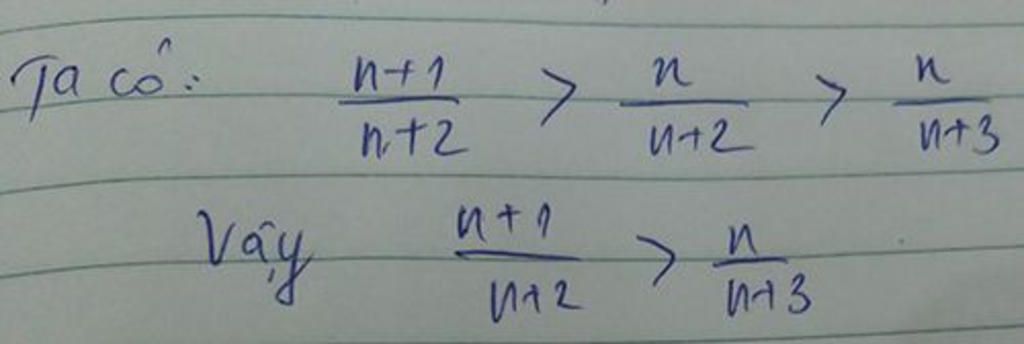 Ta có: \frac{n+1}{n+2} > \frac{n}{n+2} > \frac{n}{n+3}
Vậy \frac{n+1}{n+2} > \frac{n}{n+3}